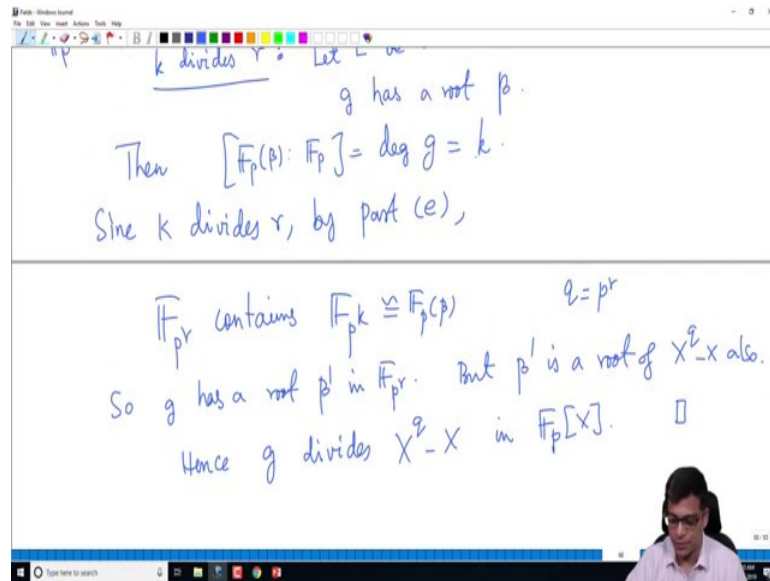 Fields - Windows Journal
File Edit View Insert Actions Tools Help
k divides r : Let L be
g has a root β.
Then [𝔽_p(β) : 𝔽_p] = deg g = k.
Sine k divides r, by part (e),
𝔽_{p^r} contains 𝔽_{p^k} ≅ 𝔽_p(β) q = p^r
So g has a root β' in 𝔽_{p^r}. But β' is a root of X^q - X also.
Hence g divides X^q - X in 𝔽_p[X]. □
Type here to search